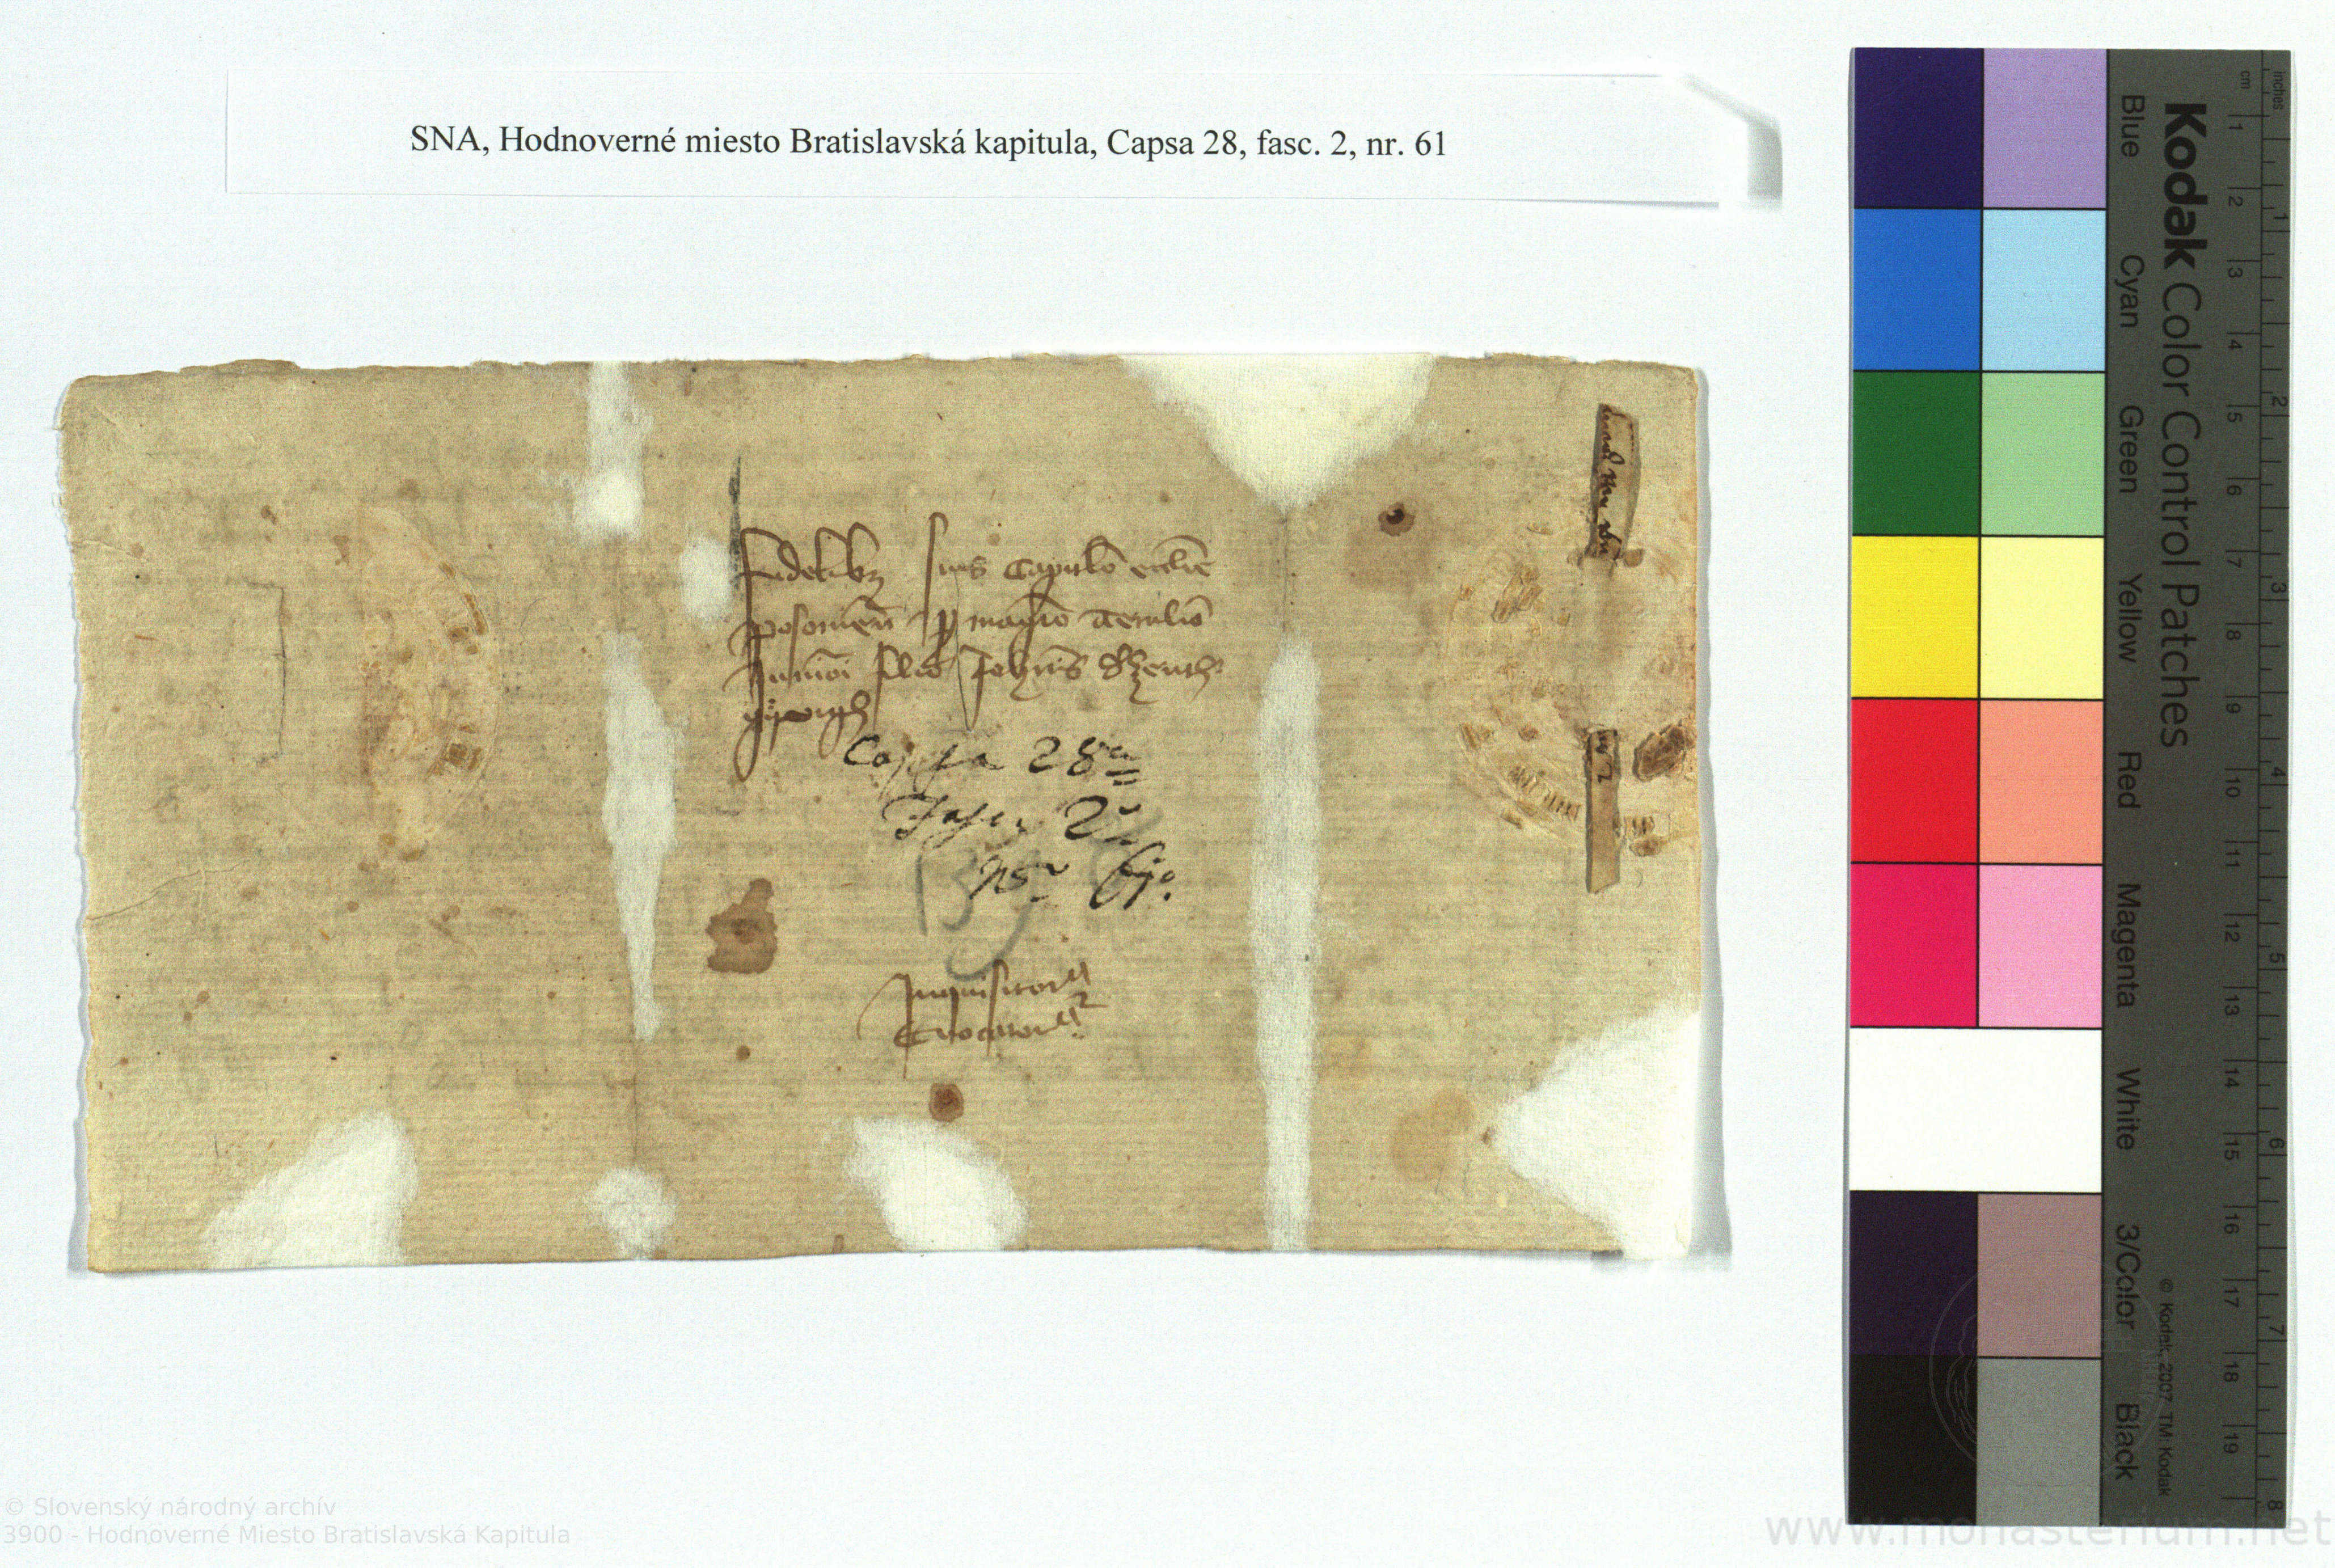 SNA, Hodnoverné miesto Bratislavská kapitula, Capsa 28, fasc. 2, nr. 61
Fidelibz suis Capitulo ecclie
posonien p magro
filio Johnis
Capsa 28a
Fasc. 2
Nr 61.
139
Inquisitoria
Evocatoria
Kodak Color Control Patches
Blue Cyan Green Yellow Red Magenta White 3/Color Black
© Kodak, 2007 TM: Kodak
inches 1 2 3 4 5 6 7 8
cm 1 2 3 4 5 6 7 8 9 10 11 12 13 14 15 16 17 18 19
© Slovenský národný archív
3900 - Hodnoverné Miesto Bratislavská Kapitula
www.monasterium.net